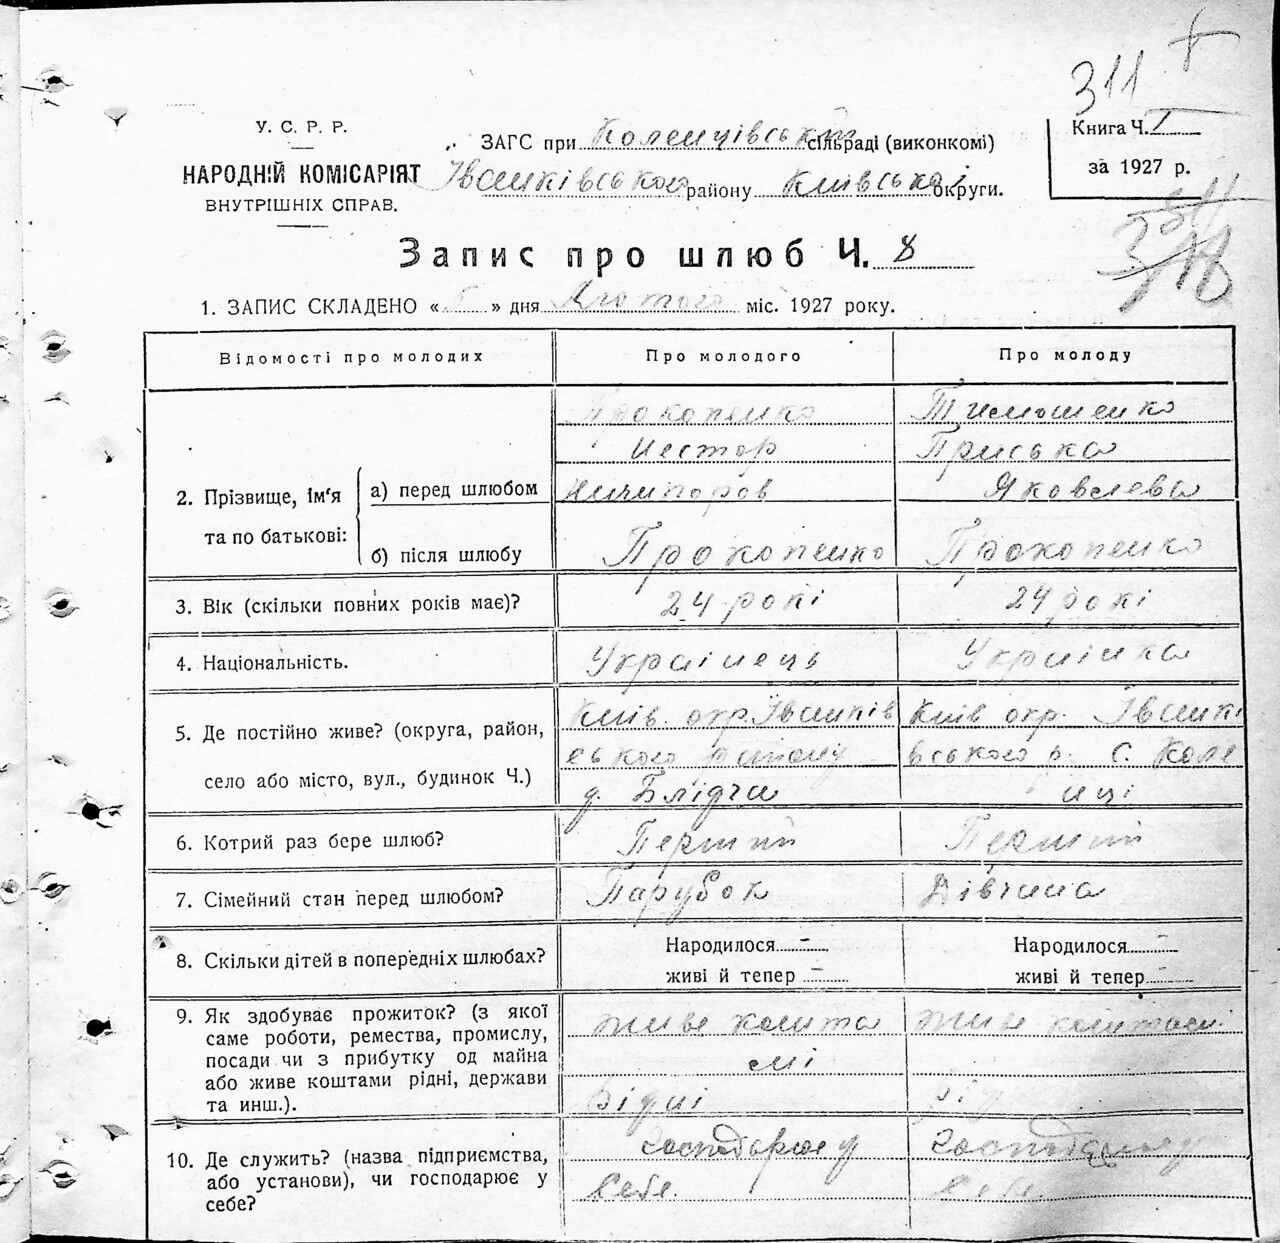 311
У. С. Р. Р.
НАРОДНІЙ КОМІСАРІЯТ
ВНУТРІШНІХ СПРАВ.
ЗАГС при Коленцівській сільраді (виконкомі)
Іванківського району Київської округи.
Книга Ч. 1
за 1927 р.
Запис про шлюб Ч. 8
1. ЗАПИС СКЛАДЕНО « 5 » дня Лютого міс. 1927 року.
Відомості про молодих
Про молодого
Про молоду
2. Прізвище, ім'я та по батькові:
а) перед шлюбом
Прокопенко
Нестор
Ничипоров
Тимошенко
Приська
Яковлева
б) після шлюбу
Прокопенко
Прокопенко
3. Вік (скільки повних років має)?
24 рокі
24 рокі
4. Національність.
Українець
Українка
5. Де постійно живе? (округа, район,
село або місто, вул., будинок Ч.)
Київ. окр. Іванків
ського району
д. Блідча
Київ окр. Іванкі
вського р. с. Коле
нці
6. Котрий раз бере шлюб?
Перший
Перший
7. Сімейний стан перед шлюбом?
Парубок
Дівчина
8. Скільки дітей в попередніх шлюбах?
Народилося -
живі й тепер -
Народилося -
живі й тепер -
9. Як здобуває прожиток? (з якої
саме роботи, ремества, промислу,
посади чи з прибутку од майна
або живе коштами рідні, держави
та инш.).
живе кошта
мі
рідні
живе коштами
10. Де служить? (назва підприємства,
або установи), чи господарює у
себе?
Господарює у
себе.
Господарює у
себе.